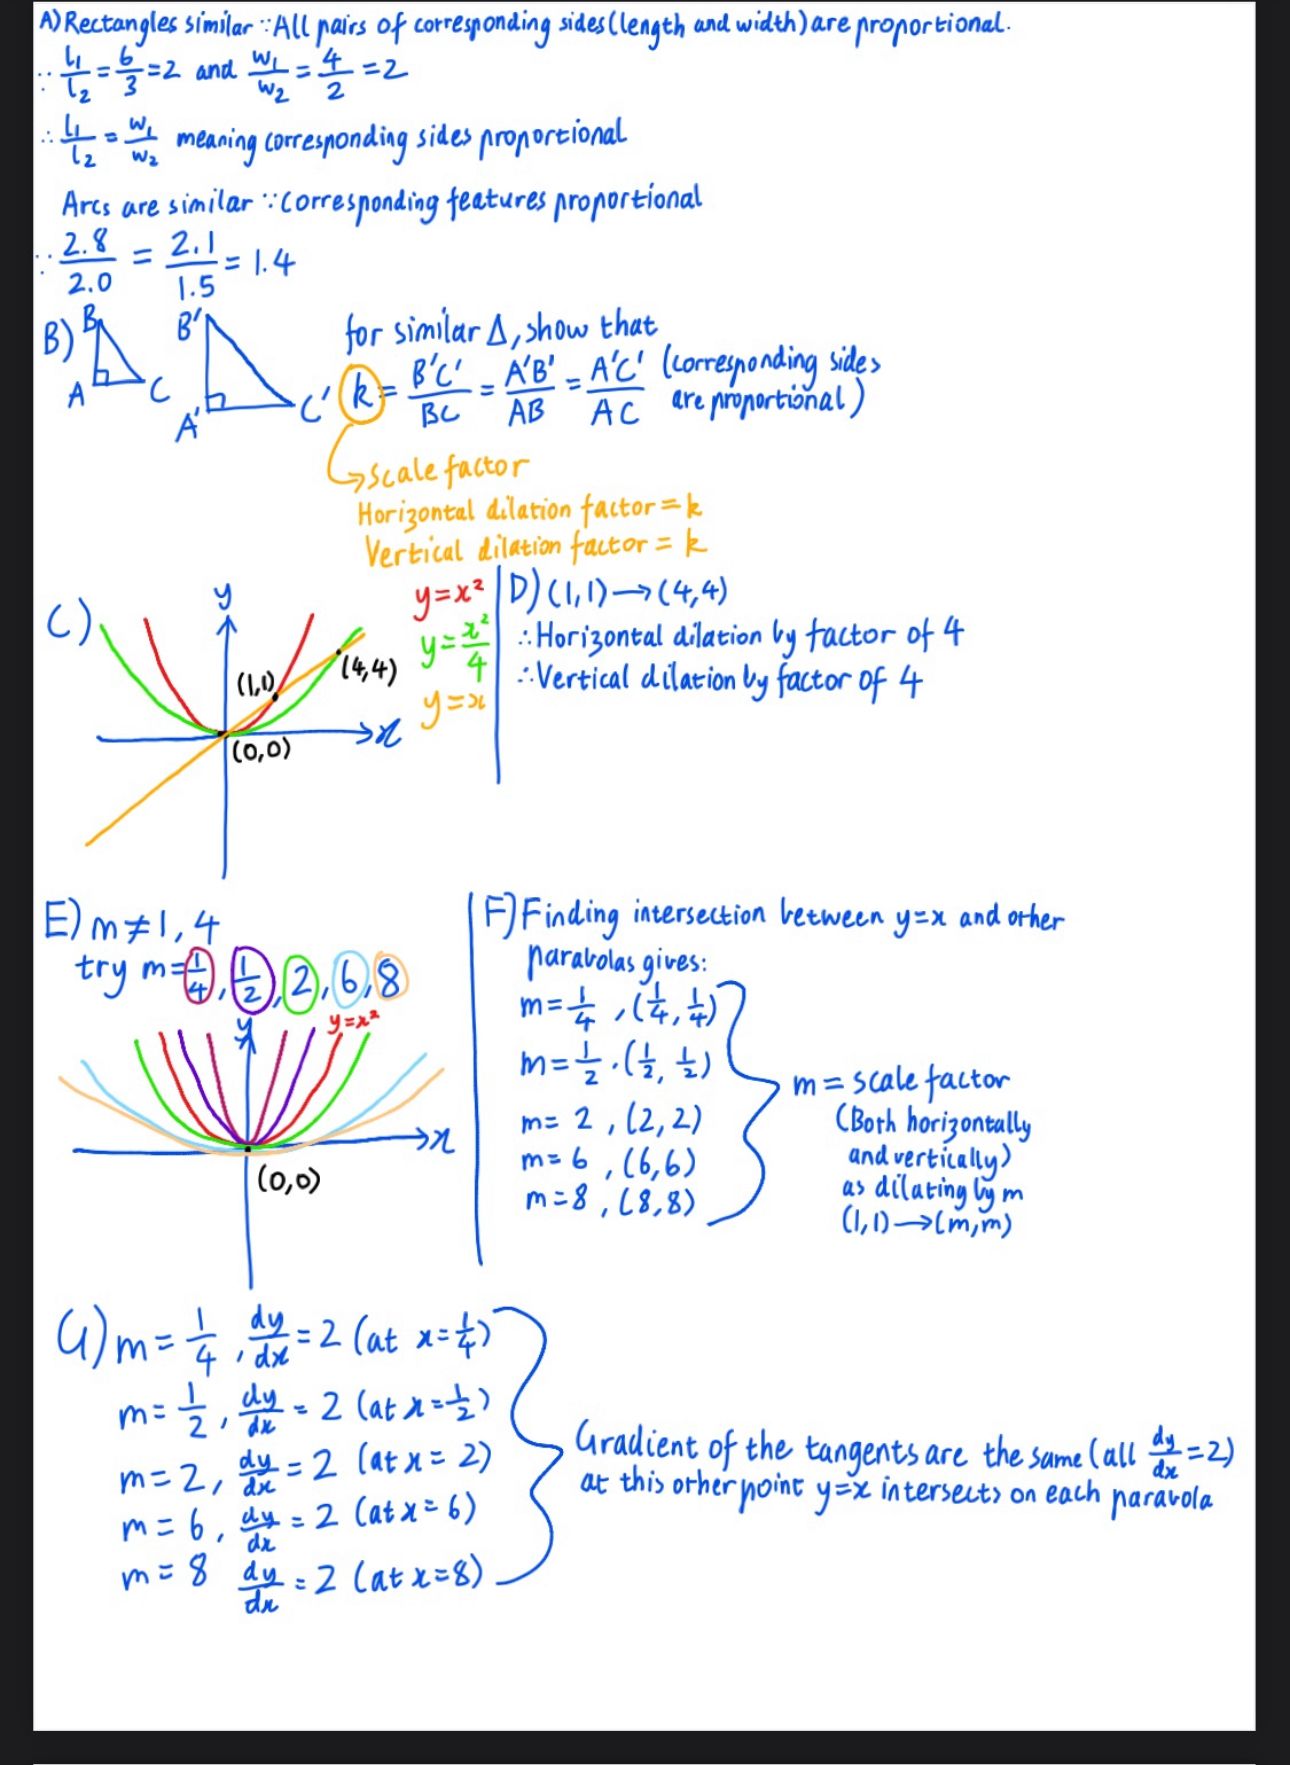 A) Rectangles similar ∵ All pairs of corresponding sides (length and width) are proportional.
∵ l₁/l₂ = 6/3 = 2 and w₁/w₂ = 4/2 = 2
∴ l₁/l₂ = w₁/w₂ meaning corresponding sides proportional
Arcs are similar ∵ corresponding features proportional
∵ 2.8/2.0 = 2.1/1.5 = 1.4
B) B A C B' A' C'
for similar Δ, show that
k = B'C'/BC = A'B'/AB = A'C'/AC (corresponding sides
are proportional)
→ scale factor
Horizontal dilation factor = k
Vertical dilation factor = k
C) y
(1,1)
(4,4)
x
(0,0)
y = x²
y = x²/4
y = x
D) (1,1) → (4,4)
∴ Horizontal dilation by factor of 4
∴ Vertical dilation by factor of 4
E) m ≠ 1, 4
try m = 1/4, 1/2, 2, 6, 8
y
y = x²
x
(0,0)
F) Finding intersection between y = x and other
parabolas gives:
m = 1/4, (1/4, 1/4)
m = 1/2 . (1/2, 1/2)
m = 2, (2,2)
m = 6, (6,6)
m = 8, (8,8)
m = scale factor
(Both horizontally
and vertically)
as dilating by m
(1,1) → (m,m)
G) m = 1/4, dy/dx = 2 (at x = 1/4)
m = 1/2, dy/dx = 2 (at x = 1/2)
m = 2, dy/dx = 2 (at x = 2)
m = 6, dy/dx = 2 (at x = 6)
m = 8 dy/dx = 2 (at x = 8)
Gradient of the tangents are the same (all dy/dx = 2)
at this other point y = x intersects on each parabola